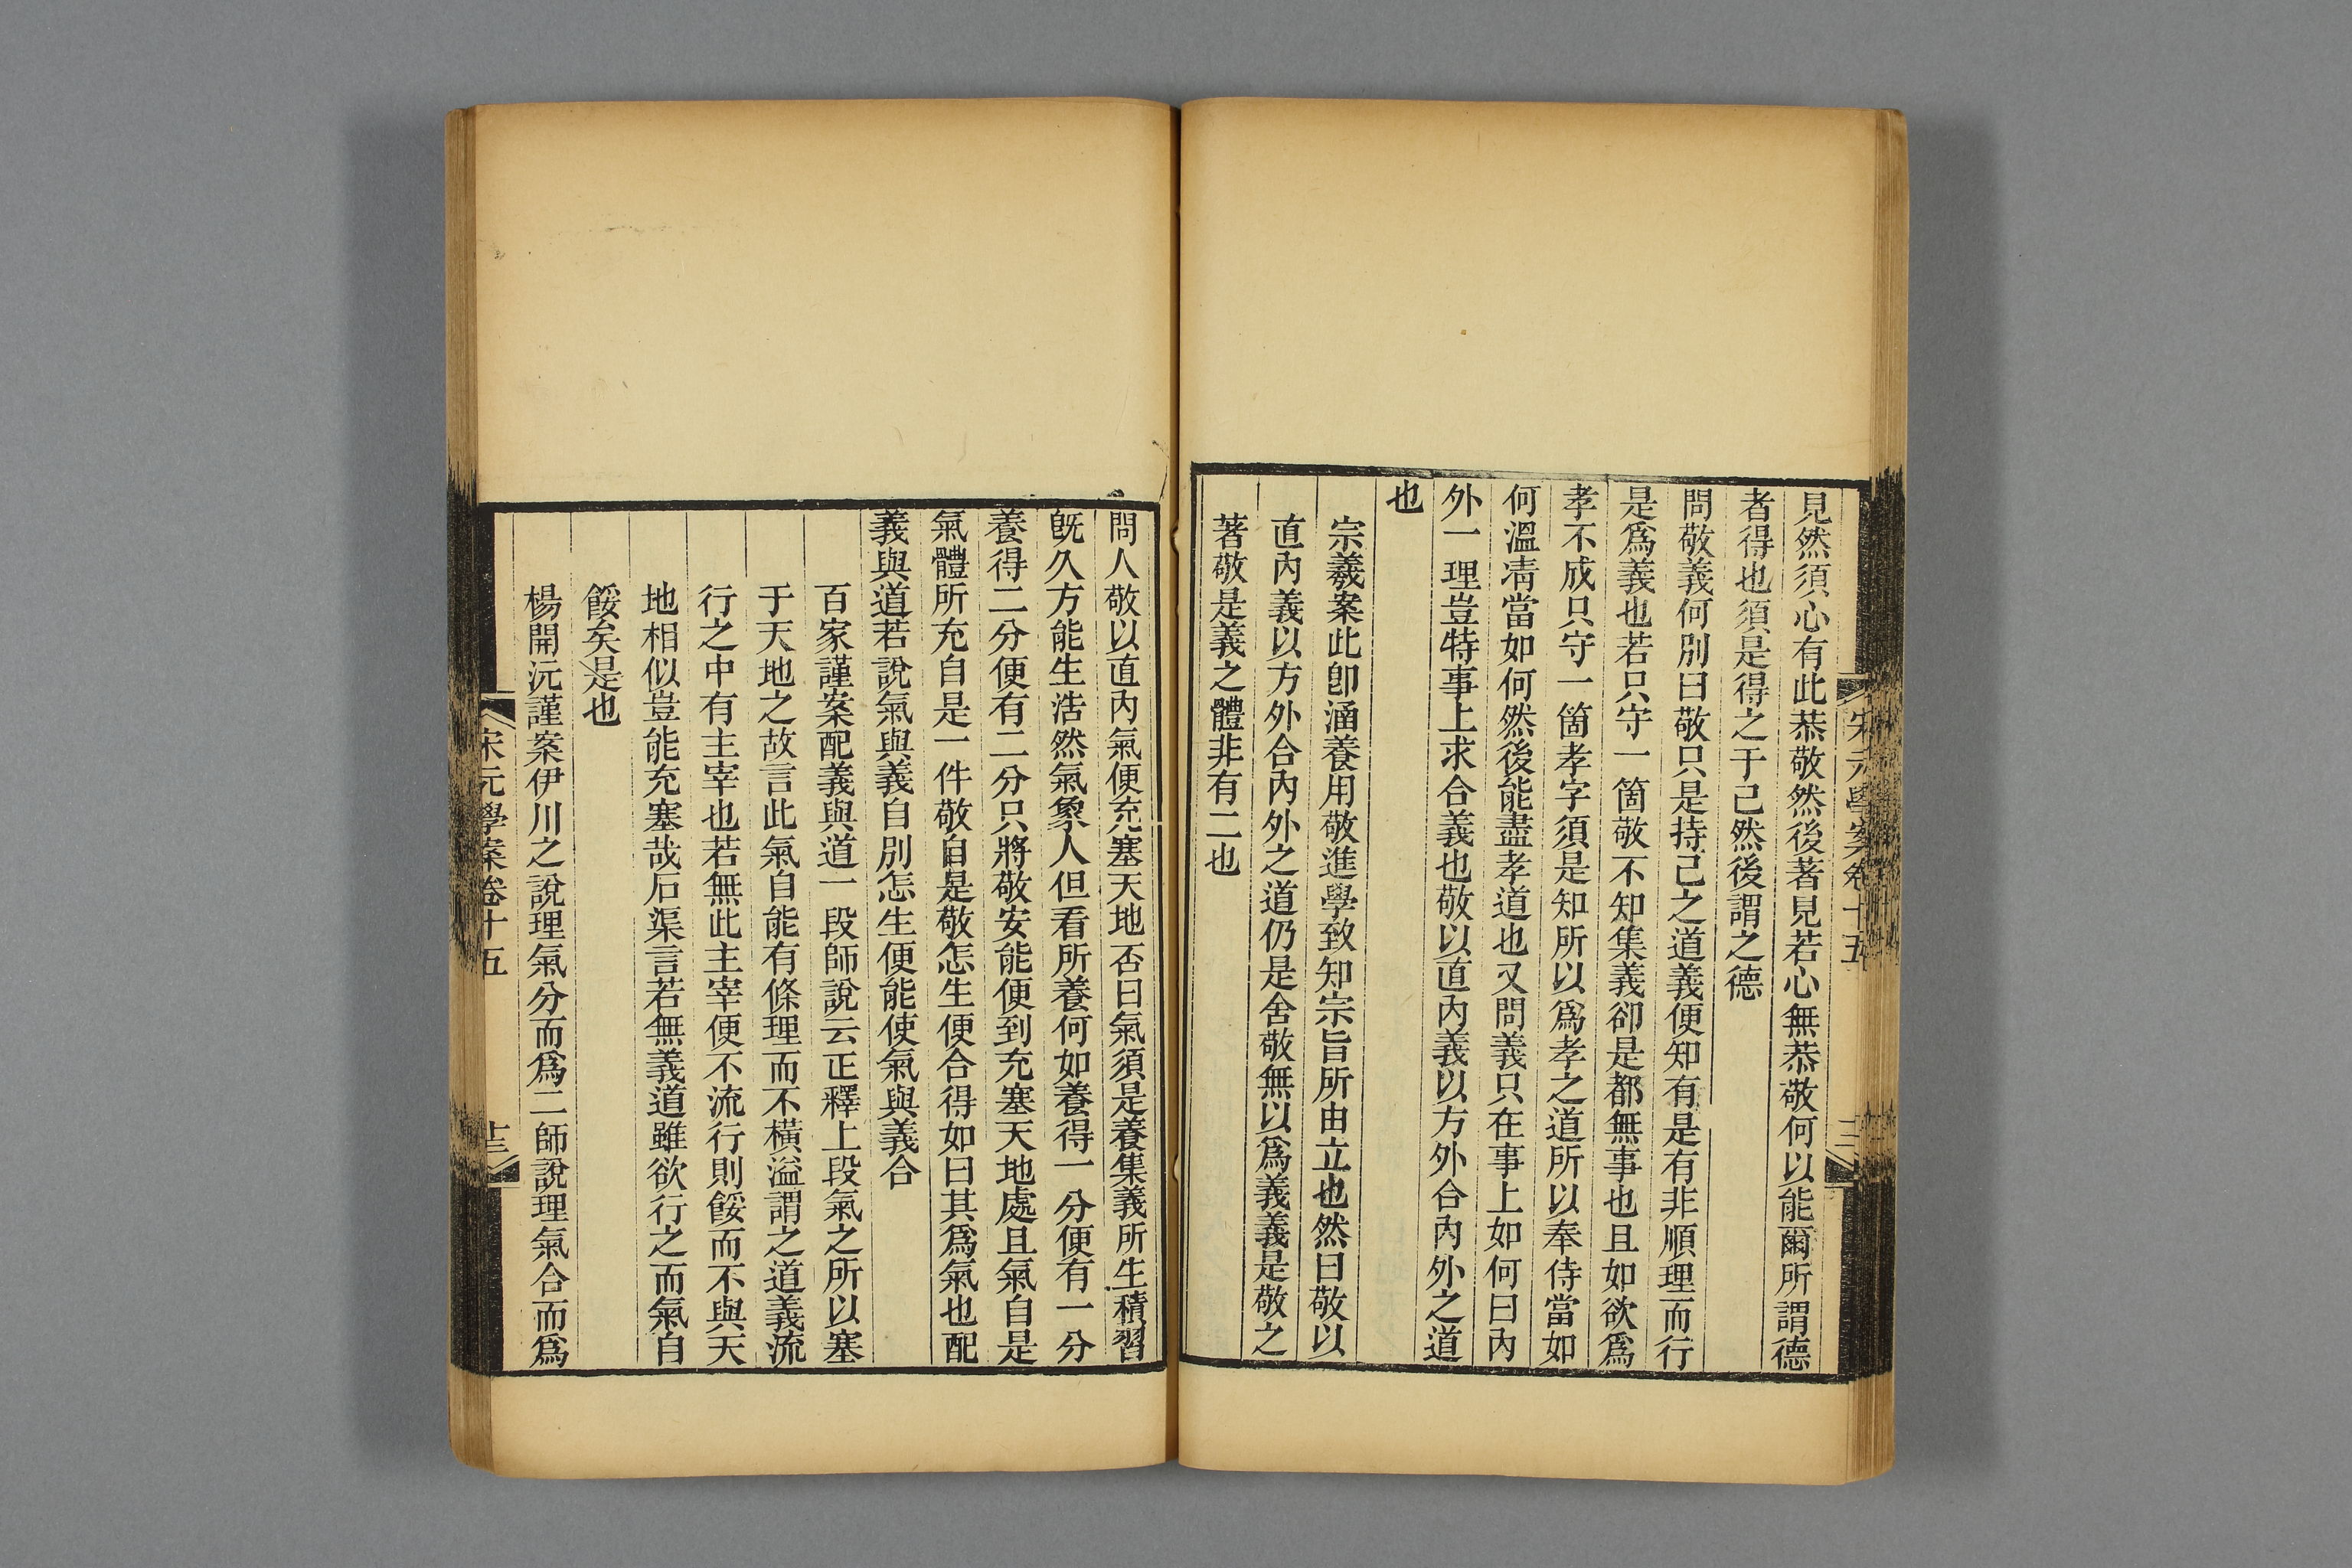 見然須心有此恭敬然後著見若心無恭敬何以能爾所謂德
者得也須是得之于己然後謂之德
問敬義何別曰敬只是持己之道義便知有是有非順理而行
是爲義也若只守一箇敬不知集義卻是都無事也且如欲爲
孝不成只守一箇孝字須是知所以爲孝之道所以奉侍當如
何溫凊當如何然後能盡孝道也又問義只在事上如何曰內
外一理豈特事上求合義也敬以直內義以方外合內外之道
也
宗羲案此卽涵養用敬進學致知宗旨所由立也然曰敬以
直內義以方外合內外之道仍是舍敬無以爲義義是敬之
著敬是義之體非有二也
問人敬以直內氣便充塞天地否曰氣須是養集義所生積習
旣久方能生浩然氣象人但看所養何如養得一分便有一分
養得二分便有二分只將敬安能便到充塞天地處且氣自是
氣體所充自是一件敬自是敬怎生便合得如曰其爲氣也配
義與道若說氣與義自別怎生便能使氣與義合
百家謹案配義與道一段師說云正釋上段氣之所以塞
于天地之故言此氣自能有條理而不橫溢謂之道義流
行之中有主宰也若無此主宰便不流行則餒而不與天
地相似豈能充塞哉石渠言若無義道雖欲行之而氣自
餒矣是也
楊開沅謹案伊川之說理氣分而爲二師說理氣合而爲
宋元學案卷十五